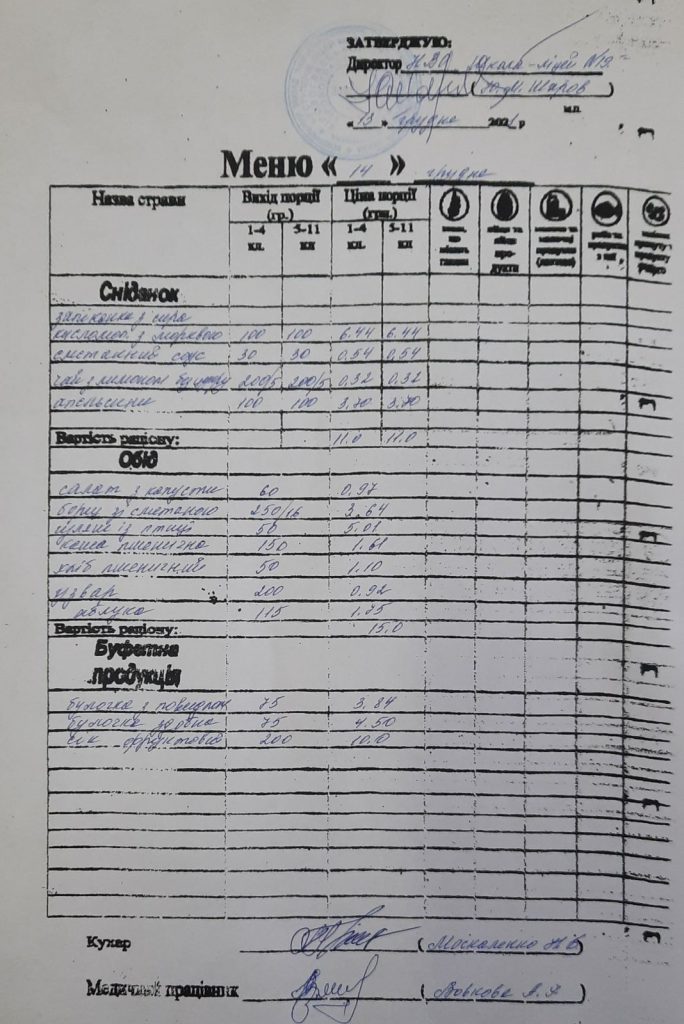 ЗАТВЕРДЖУЮ:
Директор НВО Школа-ліцей №19
( Ю.М. Шаров )
м.п.
« 13 » грудня 2021 р
Меню « 14 » грудня
Назва страви Вихід порції (гр.) Ціна порції (грн.)
1-4 кл. 5-11 кл 1-4 кл. 5-11 кл
продукти
Сніданок
запіканка з сиру
кисломол з морквою 100 100 6.44 6.44
сметанний соус 30 30 0,54 0,54
чай з лимоном 200/5 200/5 0,32 0,32
апельсини 100 100 3.70 3.70
Вартість раціону: 11.0 11.0
Обід
салат з капусти 60 0.97
борщ зі сметаною 250/16 3.64
із птиці 50 5.01
каша пшенична 150 1.61
хліб пшеничний 50 1.10
узвар 200 0.92
яблуко 115 1.75
Вартість раціону: 15.0
Буфетна
продукція
булочка з повидлом 75 3.84
булочка 75 4.50
сік фруктовий 200 10.0
Кухар ( Москаленко Н.В. )
Медичний працівник ( Вовкова )